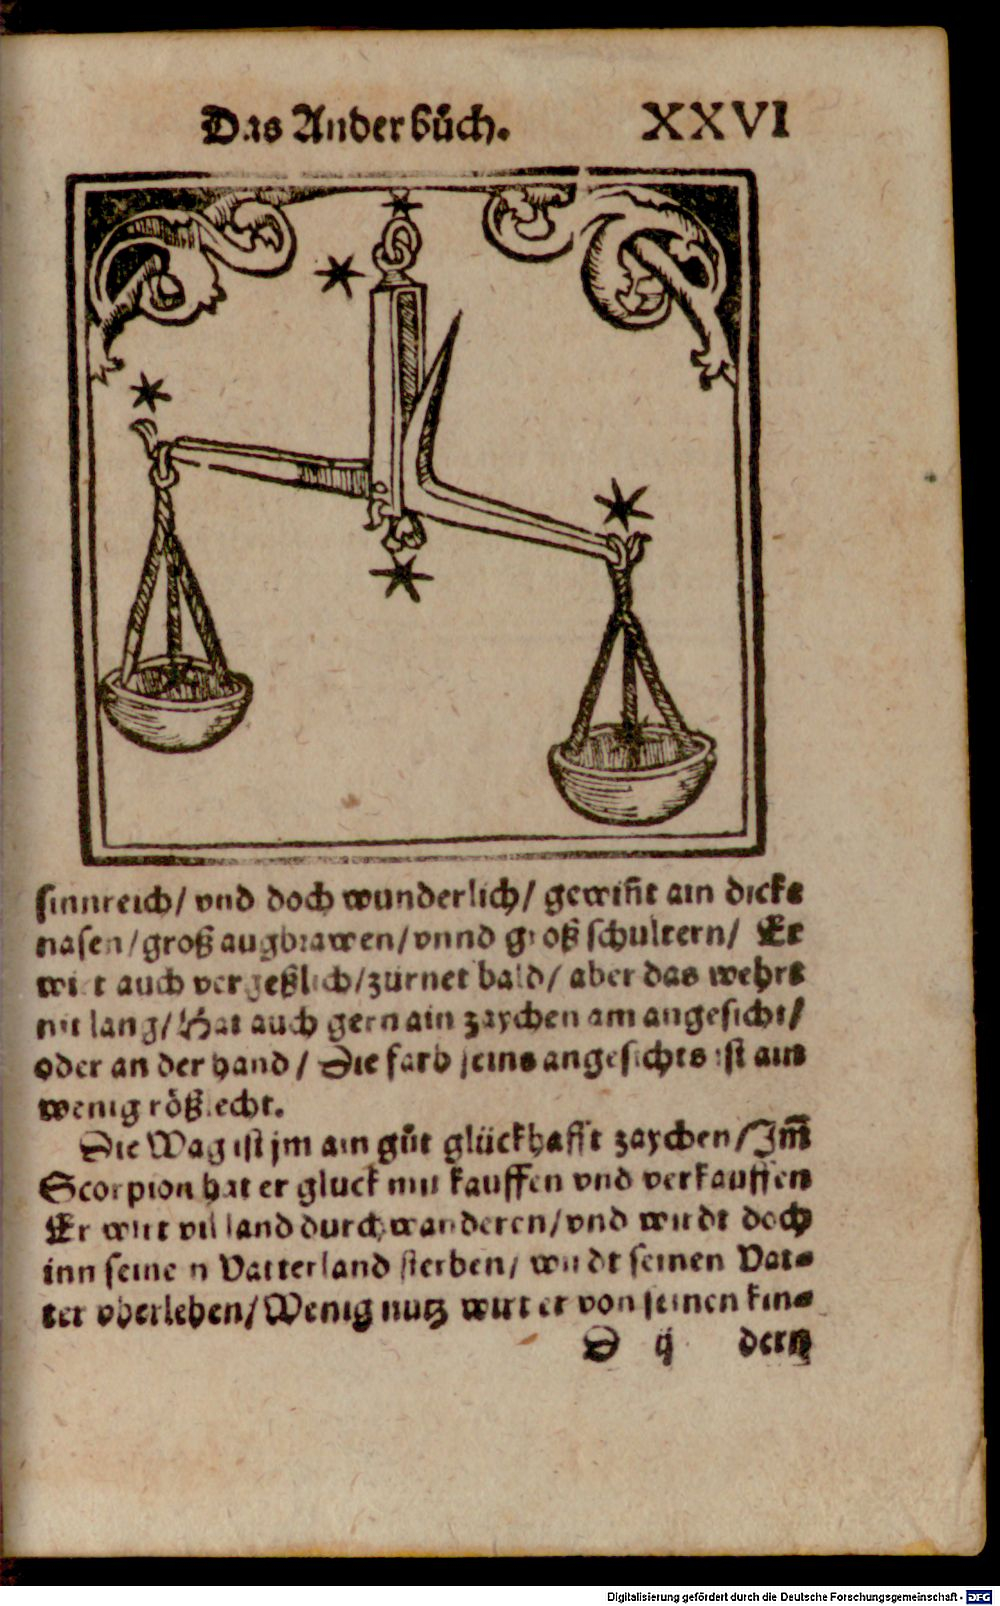 Das Ander bůch. XXVI
sinnreich/ vnd doch wunderlich/ gewiñt ain dicke
nasen/groß augbrawen/vnnd groß schultern/ Er
wirt auch vergeßlich/zürnet bald/ aber das wehrt
nit lang/ Hat auch gern ain zaychen am angesicht/
oder an der hand/ Die farb seins angesichts ist ain
wenig rößlecht.
Die Wag ist jm ain gůt glückhafft zaychen/ Jm̃
Scorpion hat er gluck mit kauffen vnd verkauffen
Er wirt vil land durchwanderen/vnd wirdt doch
inn seinen Vatterland sterben/ wirdt seinen Vat⸗
ter vberleben/ Wenig nutz wirt er von seinen kin⸗
D ij dern
Digitalisierung gefördert durch die Deutsche Forschungsgemeinschaft - DFG